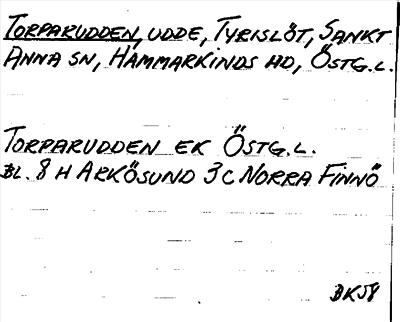 TORPARUDDEN, UDDE, TYRISLÖT, SANKT
ANNA SN, HAMMARKINDS HD, ÖSTG.L.
TORPARUDDEN EK ÖSTG.L.
BL. 8 H ARKÖSUND 3 C NORRA FINNÖ
BK58